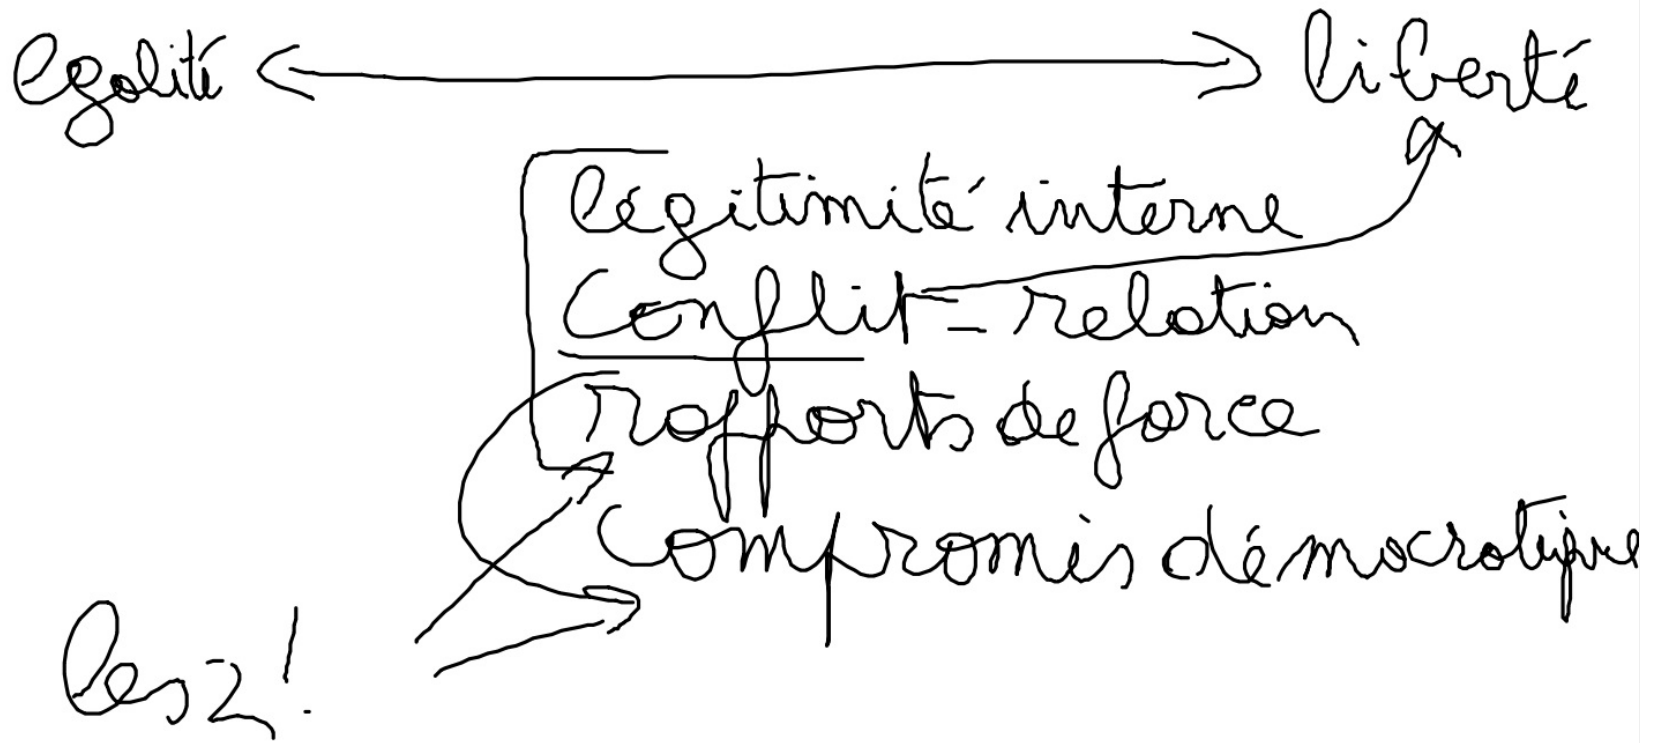 égalité liberté
légitimité interne
Conflit = relation
rapports de force
Compromis démocratique
les 2 !